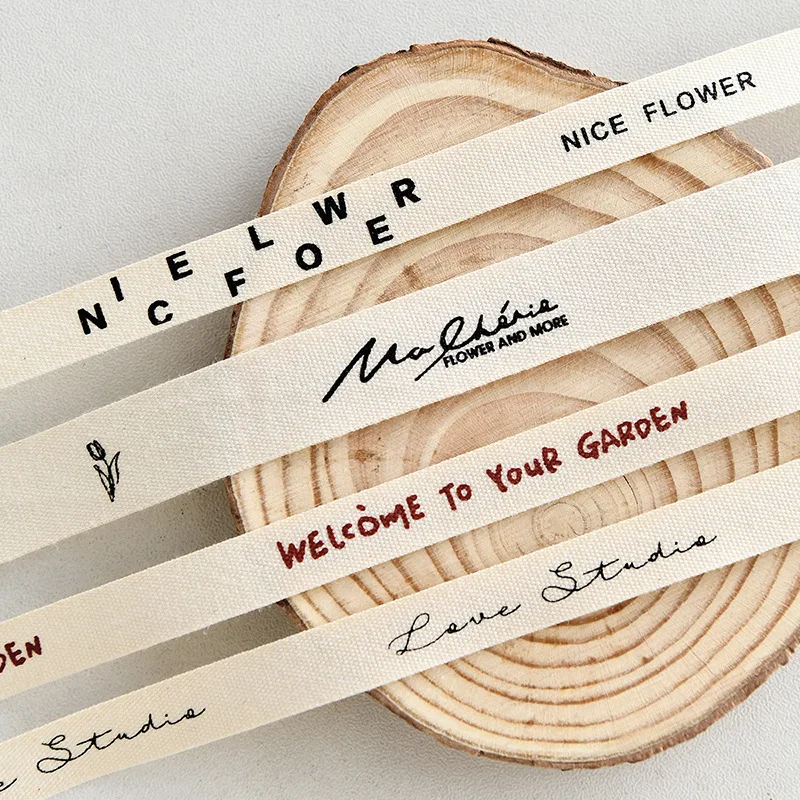 NICE FLOWER
NICE FLOWER
Ma Chérie
FLOWER AND MORE
WELCOME TO YOUR GARDEN
DEN
Love Studio
e Studio